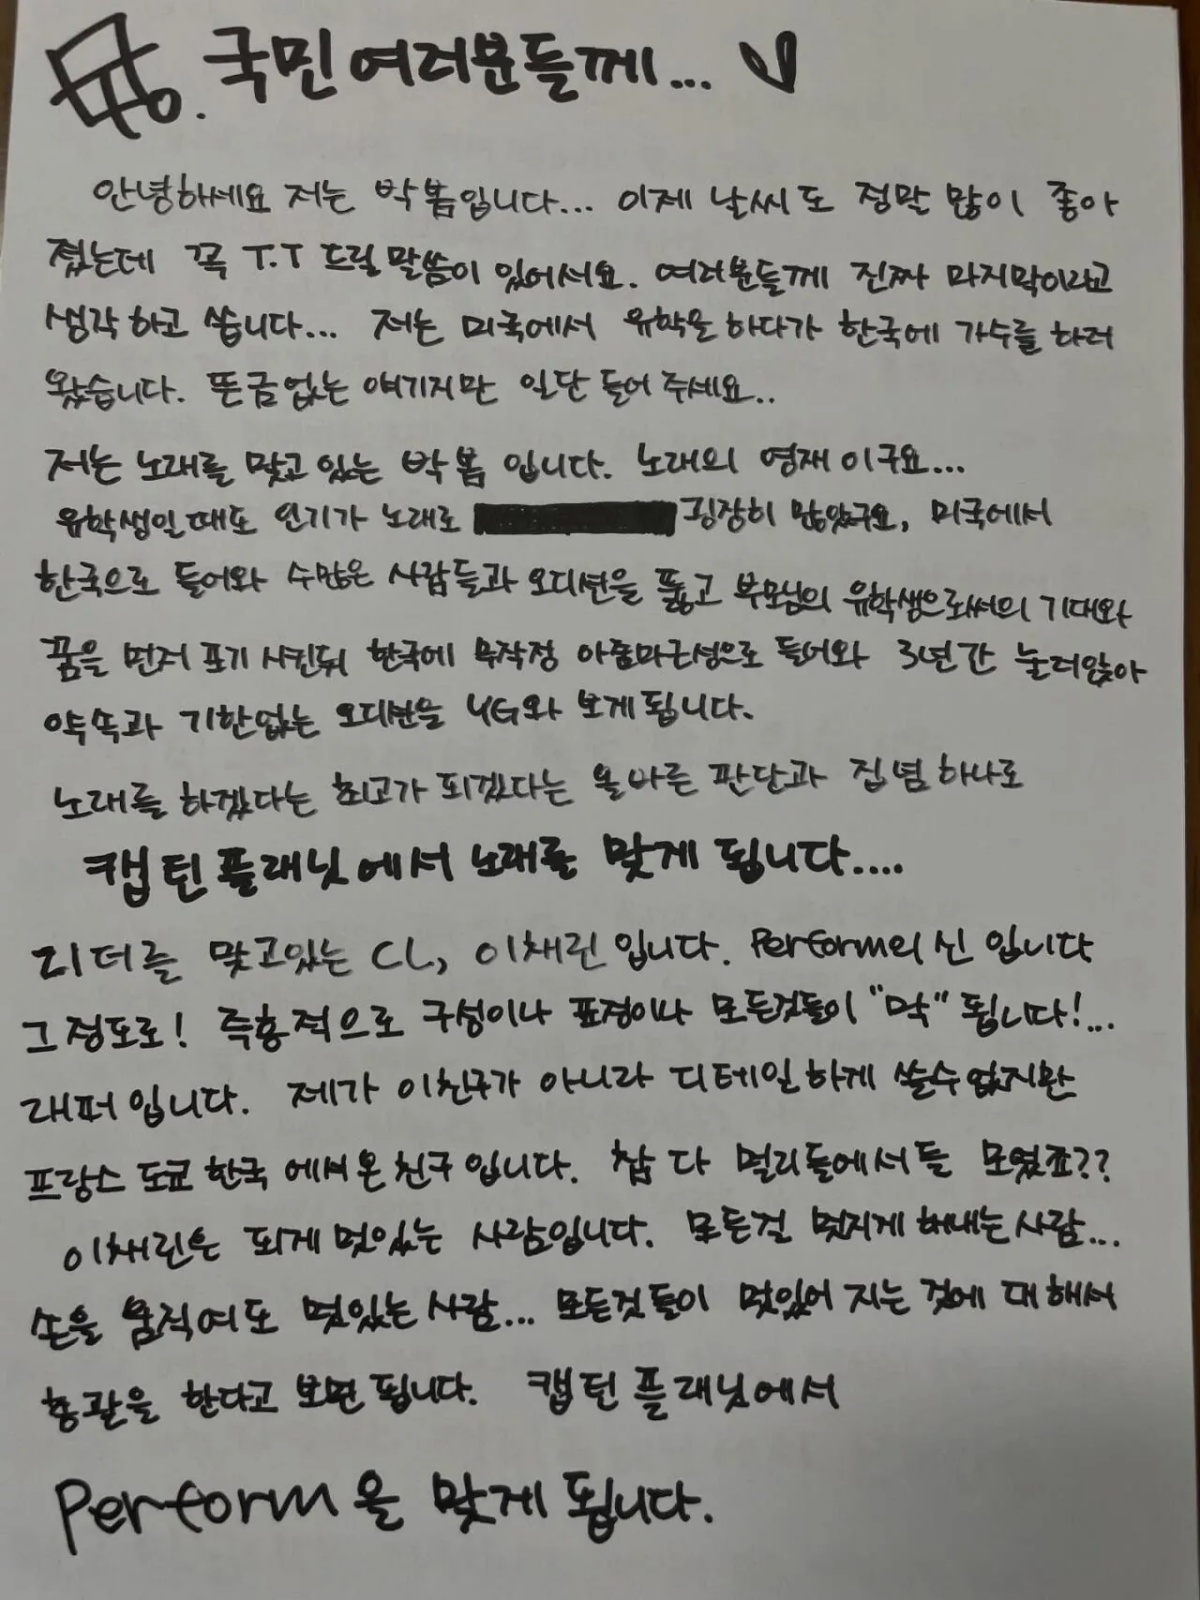 국민여러분들께... ♡
안녕하세요 저는 박봄입니다... 이제 날씨도 정말 많이 좋아
졌는데 꼭 T.T 드릴말씀이 있어서요. 여러분들께 진짜 마지막이라고
생각하고 씁니다... 저는 미국에서 유학을 하다가 한국에 가수를 하러
왔습니다. 뜬금없는 얘기지만 일단 들어주세요..
저는 노래를 맞고있는 박봄 입니다. 노래의 영재이구요...
유학생일때도 인기가 노래로 굉장히 많았구요, 미국에서
한국으로 들어와 수많은 사람들과 오디션을 뚫고 부모님의 유학생으로써의 기대와
꿈을 먼저 포기 시킨뒤 한국에 무작정 아줌마근성으로 들어와 3년간 눌러앉아
약속과 기한없는 오디션을 YG와 보게됩니다.
노래를 하겠다는 최고가 되겠다는 올바른 판단과 집념하나로
캡틴플래닛에서 노래를 맞게 됩니다....
리더를 맞고있는 CL, 이채린입니다. Perform의 신 입니다
그정도로! 즉흥적으로 구성이나 표정이나 모든것들이 "막" 됩니다!...
래퍼입니다. 제가 이친구가 아니라 디테일하게 쓸수없지만
프랑스 도쿄 한국에서온친구입니다. 참 다 멀리들에서들 모였죠??
이채린은 되게 멋있는 사람입니다. 모든걸 멋지게 해내는사람...
손을 움직여도 멋있는사람... 모든것들이 멋있어 지는 것에 대해서
총괄을 한다고 보면 됩니다. 캡틴플래닛에서
Perform을 맞게 됩니다.